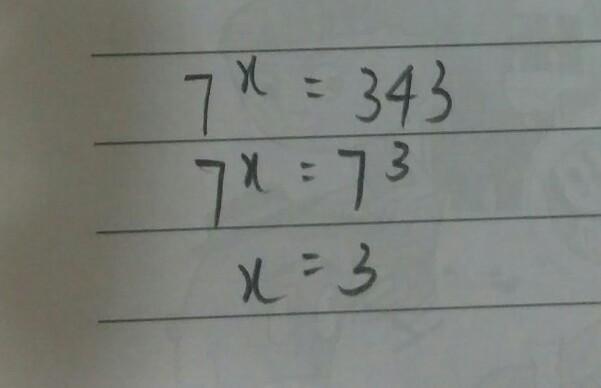 7^x = 343
7^x = 7^3
x = 3